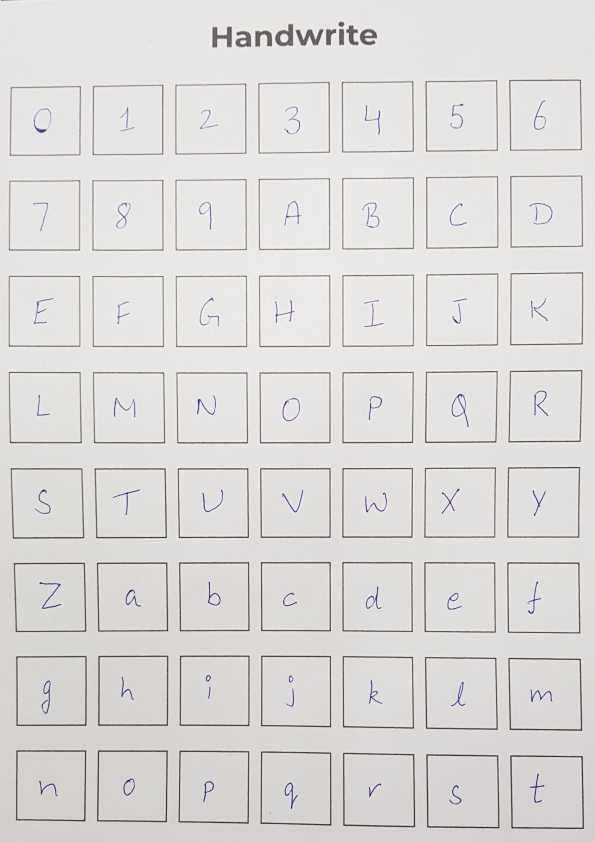 Handwrite
0 1 2 3 4 5 6
7 8 9 A B C D
E F G H I J K
L M N O P Q R
S T U V W X Y
Z a b c d e f
g h i j k l m
n o p q r s t